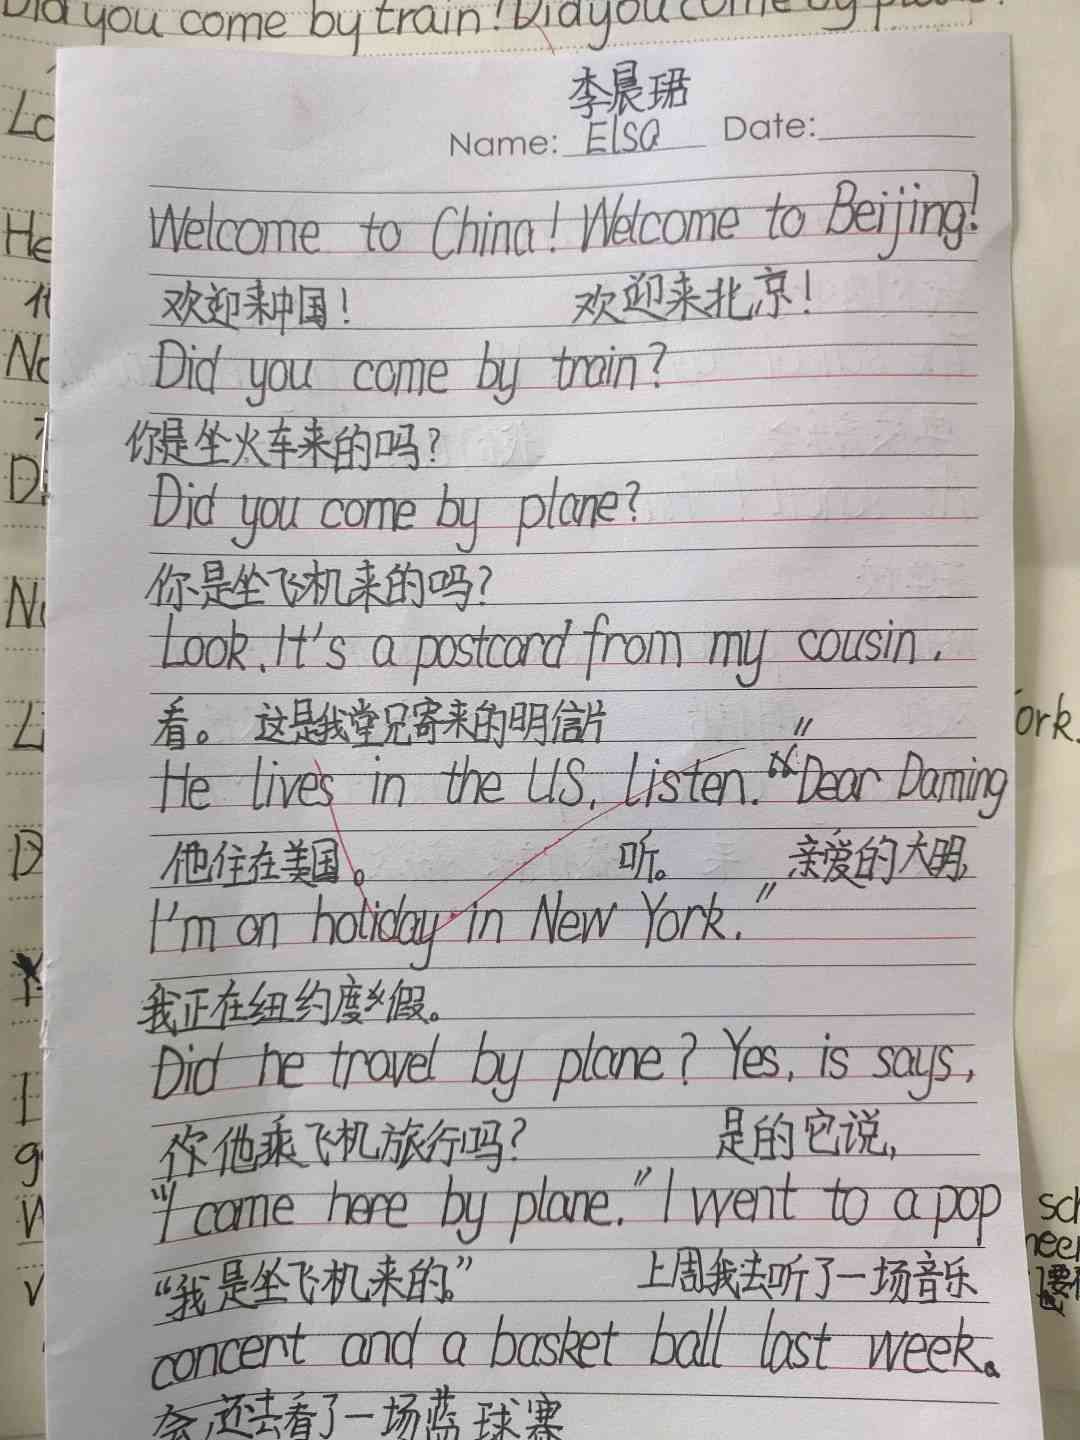 Did you come by train! Did you come by
李晨珺
Name: Elsa Date:
Welcome to China! Welcome to Beijing!
欢迎来中国！ 欢迎来北京！
Did you come by train?
你是坐火车来的吗？
Did you come by plane?
你是坐飞机来的吗？
Look. It's a postcard from my cousin.
看。 这是我堂兄寄来的明信片
He lives in the US. Listen. "Dear Daming
他住在美国。 听。 亲爱的大明,
I'm on holiday in New York."
我正在纽约度假。
Did he travel by plane? Yes, is says,
你他乘飞机旅行吗？ 是的它说,
"I came here by plane." I went to a pop
“我是坐飞机来的。” 上周我去听了一场音乐
concert and a basket ball last week.
会,还去看了一场蓝球赛